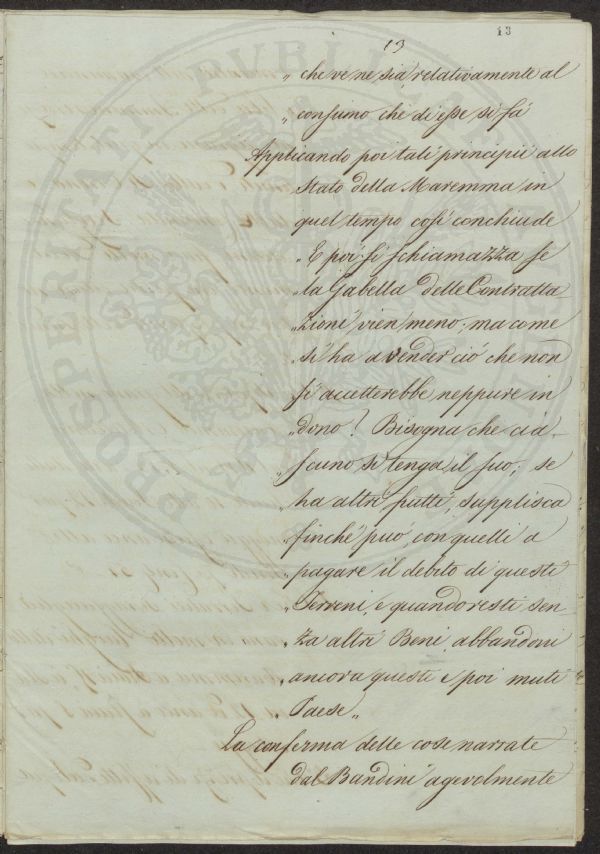 13
13
„ che ve ne sia, relativamente al
„ consumo che di esse si fà
Applicando poi tali principii allo
Stato della Maremma in
quel tempo così conchiude
„ E poi si schiamazza se
„ la Gabella delle Contratta
„ zioni vien meno; ma come
„ si ha a vender ciò che non
„ si accetterebbe neppure in
„ dono? Bisogna che cia-
„ scuno si tenga il suo; se
„ ha altri frutti, supplisca
„ finchè può, con quelli a
„ pagare il debito di questi
„ Terreni, e quando resti sen
„ za altri Beni, abbandoni
„ ancora questi e poi muti
„ Paese „
La conferma delle cose narrate
dal Bandini agevolmente
PROSPERITATI PUBLICAE